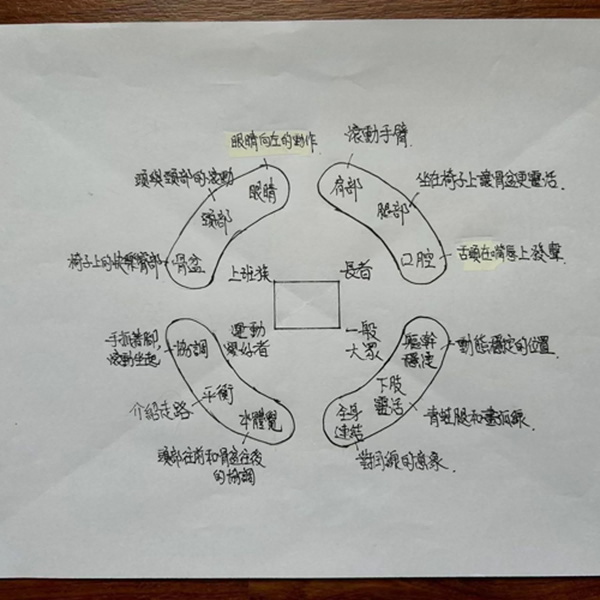 眼睛向左的動作
滾動手臂
頭與頸部的滾動
眼睛
頸部
椅子上的快樂臀部
骨盆
上班族
肩部
腿部
坐在椅子上讓骨盆更靈活
口腔
舌頭在嘴唇上發聲
長者
手抓著腳,
滾動坐起
協調
運動
愛好者
平衡
介紹走路
本體覺
頭部往前和骨盆往後
的協調
一般
大眾
軀幹
穩定
動態穩定的位置
下肢
靈活
青蛙腿和畫弧線
全身
連結
對角線的意象